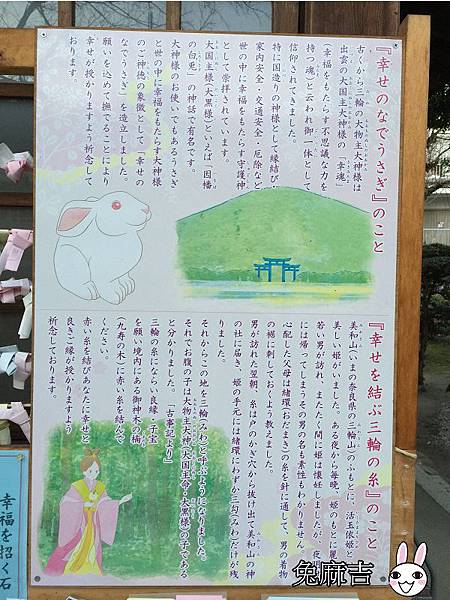 『幸せのなでうさぎ』のこと
古くから三輪の大物主大神様は
出雲の大国主大神様の「幸魂」
(幸福をもたらす不思議な力を
持つ魂)と云われ御一体として
信仰されてきました。
特に国造りの神様として縁結び・
家内安全・交通安全・厄除など
世の中に幸福をもたらす守護神
として崇拝されています。
大国主様(大黒様)といえば「因幡
の白兎」の神話で有名です。
大神様のお使いでもあるうさぎ
と世の中に幸福をもたらす大神様
のご神徳の象徴として『幸せの
なでうさぎ』を造立しました。
願いを込めて撫でることにより
幸せが授かりますよう祈念して
おります。
『幸せを結ぶ三輪の糸』のこと
美和山(いまの奈良県の三輪山)のふもとに、活玉依姫と
美しい姫がいました。ある夜から毎晩、姫のもとに麗
若い男が訪れ、またたく間に姫は懐妊しましたが、夜
には帰ってしまうその男の名も素性もわかりません
心配した父母は緒環(おだまき)の糸を針に通して、男の着物
の裾に刺しておくよう教えました。
男が訪れた翌朝、糸は戸のかぎ穴から抜け出て美和山の神
の社に届き、姫の手元には緒環にわずか三勾(みわ)だけが残
りました。
それからこの地を三輪(みわ)と呼ぶようになりました。
それでお腹の子は大物主神(大国主命・大黒様)の子である
と分かりました。「古事記より」
三輪の糸にならい良縁・子宝
を願い境内にある御神木の楠
(九寿の木)に赤い糸を結んで
ください。
赤い糸を結びあなたに幸せと
良きご縁が授かりますよう
祈念しております。
幸福を招く石
兔麻吉